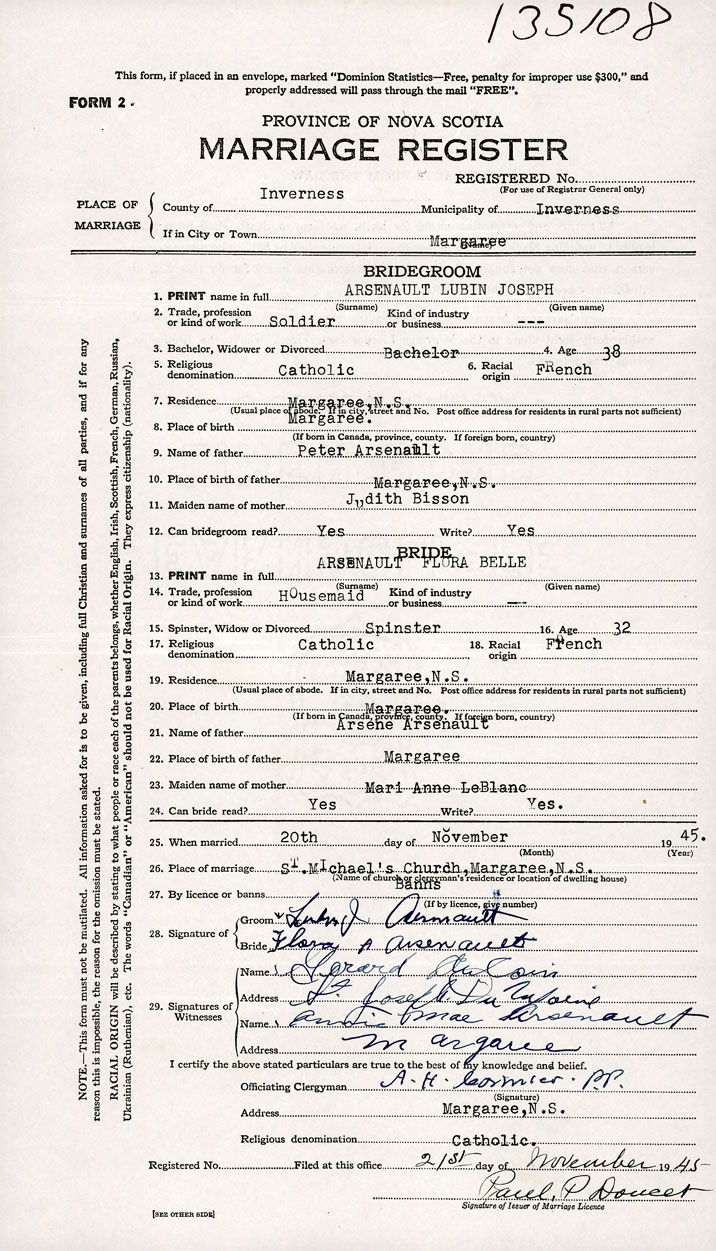 135108
This form, if placed in an envelope, marked “Dominion Statistics—Free, penalty for improper use $300,” and
properly addressed will pass through the mail “FREE”.
FORM 2.
PROVINCE OF NOVA SCOTIA
MARRIAGE REGISTER
REGISTERED No.
(For use of Registrar General only)
PLACE OF MARRIAGE
County of Inverness Municipality of Inverness
If in City or Town Margaree
(Name)
BRIDEGROOM
1. PRINT name in full ARSENAULT LUBIN JOSEPH
(Surname) (Given name)
2. Trade, profession or kind of work Soldier Kind of industry or business ---
3. Bachelor, Widower or Divorced Bachelor 4. Age 38
5. Religious denomination Catholic 6. Racial origin French
7. Residence Margaree,N.S.
(Usual place of abode. If in city, street and No. Post office address for residents in rural parts not sufficient)
8. Place of birth Margaree.
(If born in Canada, province, county. If foreign born, country)
9. Name of father Peter Arsenault
10. Place of birth of father Margaree,N.S.
11. Maiden name of mother Judith Bisson
12. Can bridegroom read? Yes Write? Yes
BRIDE
13. PRINT name in full ARSENAULT FLORA BELLE
(Surname) (Given name)
14. Trade, profession or kind of work HOusemaid Kind of industry or business ---
15. Spinster, Widow or Divorced Spinster 16. Age 32
17. Religious denomination Catholic 18. Racial origin French
19. Residence Margaree,N.S.
(Usual place of abode. If in city, street and No. Post office address for residents in rural parts not sufficient)
20. Place of birth Margaree.
(If born in Canada, province, county. If foreign born, country)
21. Name of father Arsene Arsenault
22. Place of birth of father Margaree
23. Maiden name of mother Mari Anne LeBlanc
24. Can bride read? Yes Write? Yes.
25. When married 20th day of November 1945.
(Month) (Year)
26. Place of marriage ST.MIchael's Church,Margaree,N.S.
(Name of church or clergyman's residence or location of dwelling house)
27. By licence or banns Banns
(If by licence, give number)
28. Signature of
Groom Lubin J Arsenault
Bride Flora A Arsenault
29. Signatures of Witnesses
Name Gerard
Address St. Joseph Du Moine
Name Annie Mae Arsenault
Address Margaree
I certify the above stated particulars are true to the best of my knowledge and belief.
Officiating Clergyman A. H. Cormier. P.P.
(Signature)
Address Margaree,N.S.
Religious denomination Catholic.
Registered No. Filed at this office 21st day of November 1945
Paul P Doucet
Signature of Issuer of Marriage Licence
[SEE OTHER SIDE]
NOTE.—This form must not be mutilated. All information asked for is to be given, including full Christian and surnames of all parties, and if for any
reason this is impossible, the reason for the omission must be stated.
RACIAL ORIGIN will be described by stating to what people or race each of the parents belongs, whether English, Irish, Scottish, French, German, Russian,
Ukrainian (Ruthenian), etc. The words “Canadian” or “American” should not be used for Racial Origin. They express citizenship (nationality).